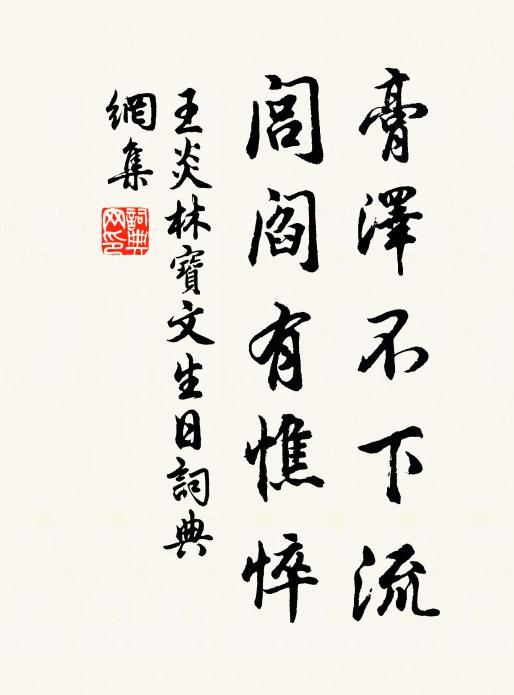 膏澤不下流
閭閻有憔悴
王炎林寶文生日詞典
網集
詞典
网印